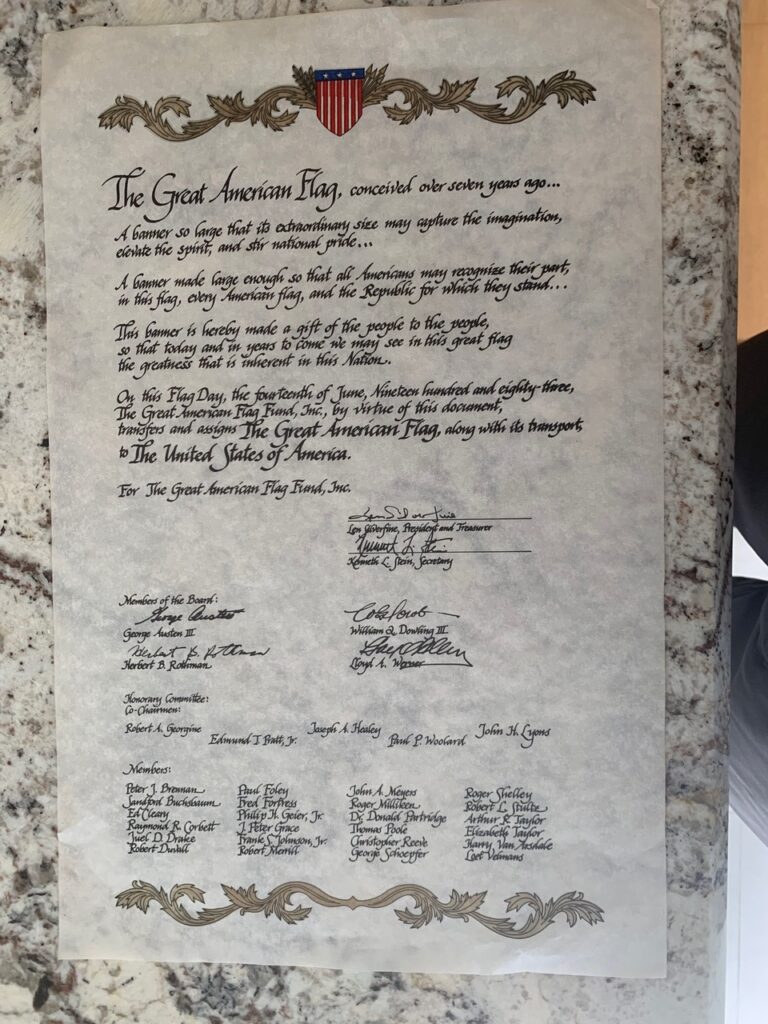 The Great American Flag, conceived over seven years ago...
A banner so large that its extraordinary size may capture the imagination,
elevate the spirit, and stir national pride...
A banner made large enough so that all Americans may recognize their part,
in this flag, every American flag, and the Republic for which they stand...
This banner is hereby made a gift of the people to the people,
so that today and in years to come we may see in this great flag
the greatness that is inherent in this Nation.
On this Flag Day, the fourteenth of June, Nineteen hundred and eighty-three,
The Great American Flag Fund, Inc., by virtue of this document,
transfers and assigns The Great American Flag, along with its transport,
to The United States of America.
For The Great American Flag Fund, Inc.
Len Silverfine, President and Treasurer
Kenneth L. Stein, Secretary
Members of the Board:
George Austen III
William Q. Dowling III
Herbert B. Rothman
Herbert B. Rothman
Lloyd A. Werner
Honorary Committee:
Co-Chairmen:
Robert A. Georgine
Edmund T. Pratt, Jr.
Joseph A. Healey
Paul P. Woolard
John H. Lyons
Members:
Peter J. Brennan
Sandford Buchsbaum
Ed Cleary
Raymond R. Corbett
Juel D. Drake
Robert Duvall
Paul Foley
Fred Fortress
Philip H. Geier, Jr.
J. Peter Grace
Frank S. Johnson, Jr.
Robert Merrill
John A. Meyers
Roger Milliken
Dr. Donald Partridge
Thomas Poole
Christopher Reeve
George Schoepfer
Roger Shelley
Robert L. Stultz
Arthur R. Taylor
Elizabeth Taylor
Harry Van Arsdale
Loet Velmans